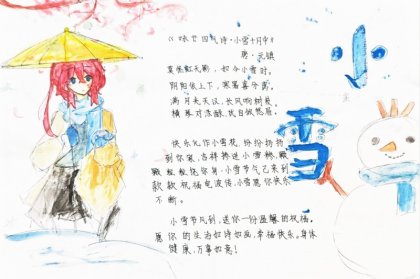 《咏廿四气诗·小雪十月中》
唐·元稹
莫怪虹无影,如今小雪时.
阴阳依上下,寒暑喜分离.
满月光天汉,长风响树枝.
横琴对渌醑,犹自敛愁眉.
快乐化作小雪花,纷纷扬扬
到你家,吉祥捧送小雪
粒粒绕你身.小雪节气已来到
款款祝福电波传,小雪愿你快乐
不断.
小雪节气到,送你一份温馨的祝福.
愿你的生活如诗如画,幸福快乐.身体
健康,万事如意!
小
雪